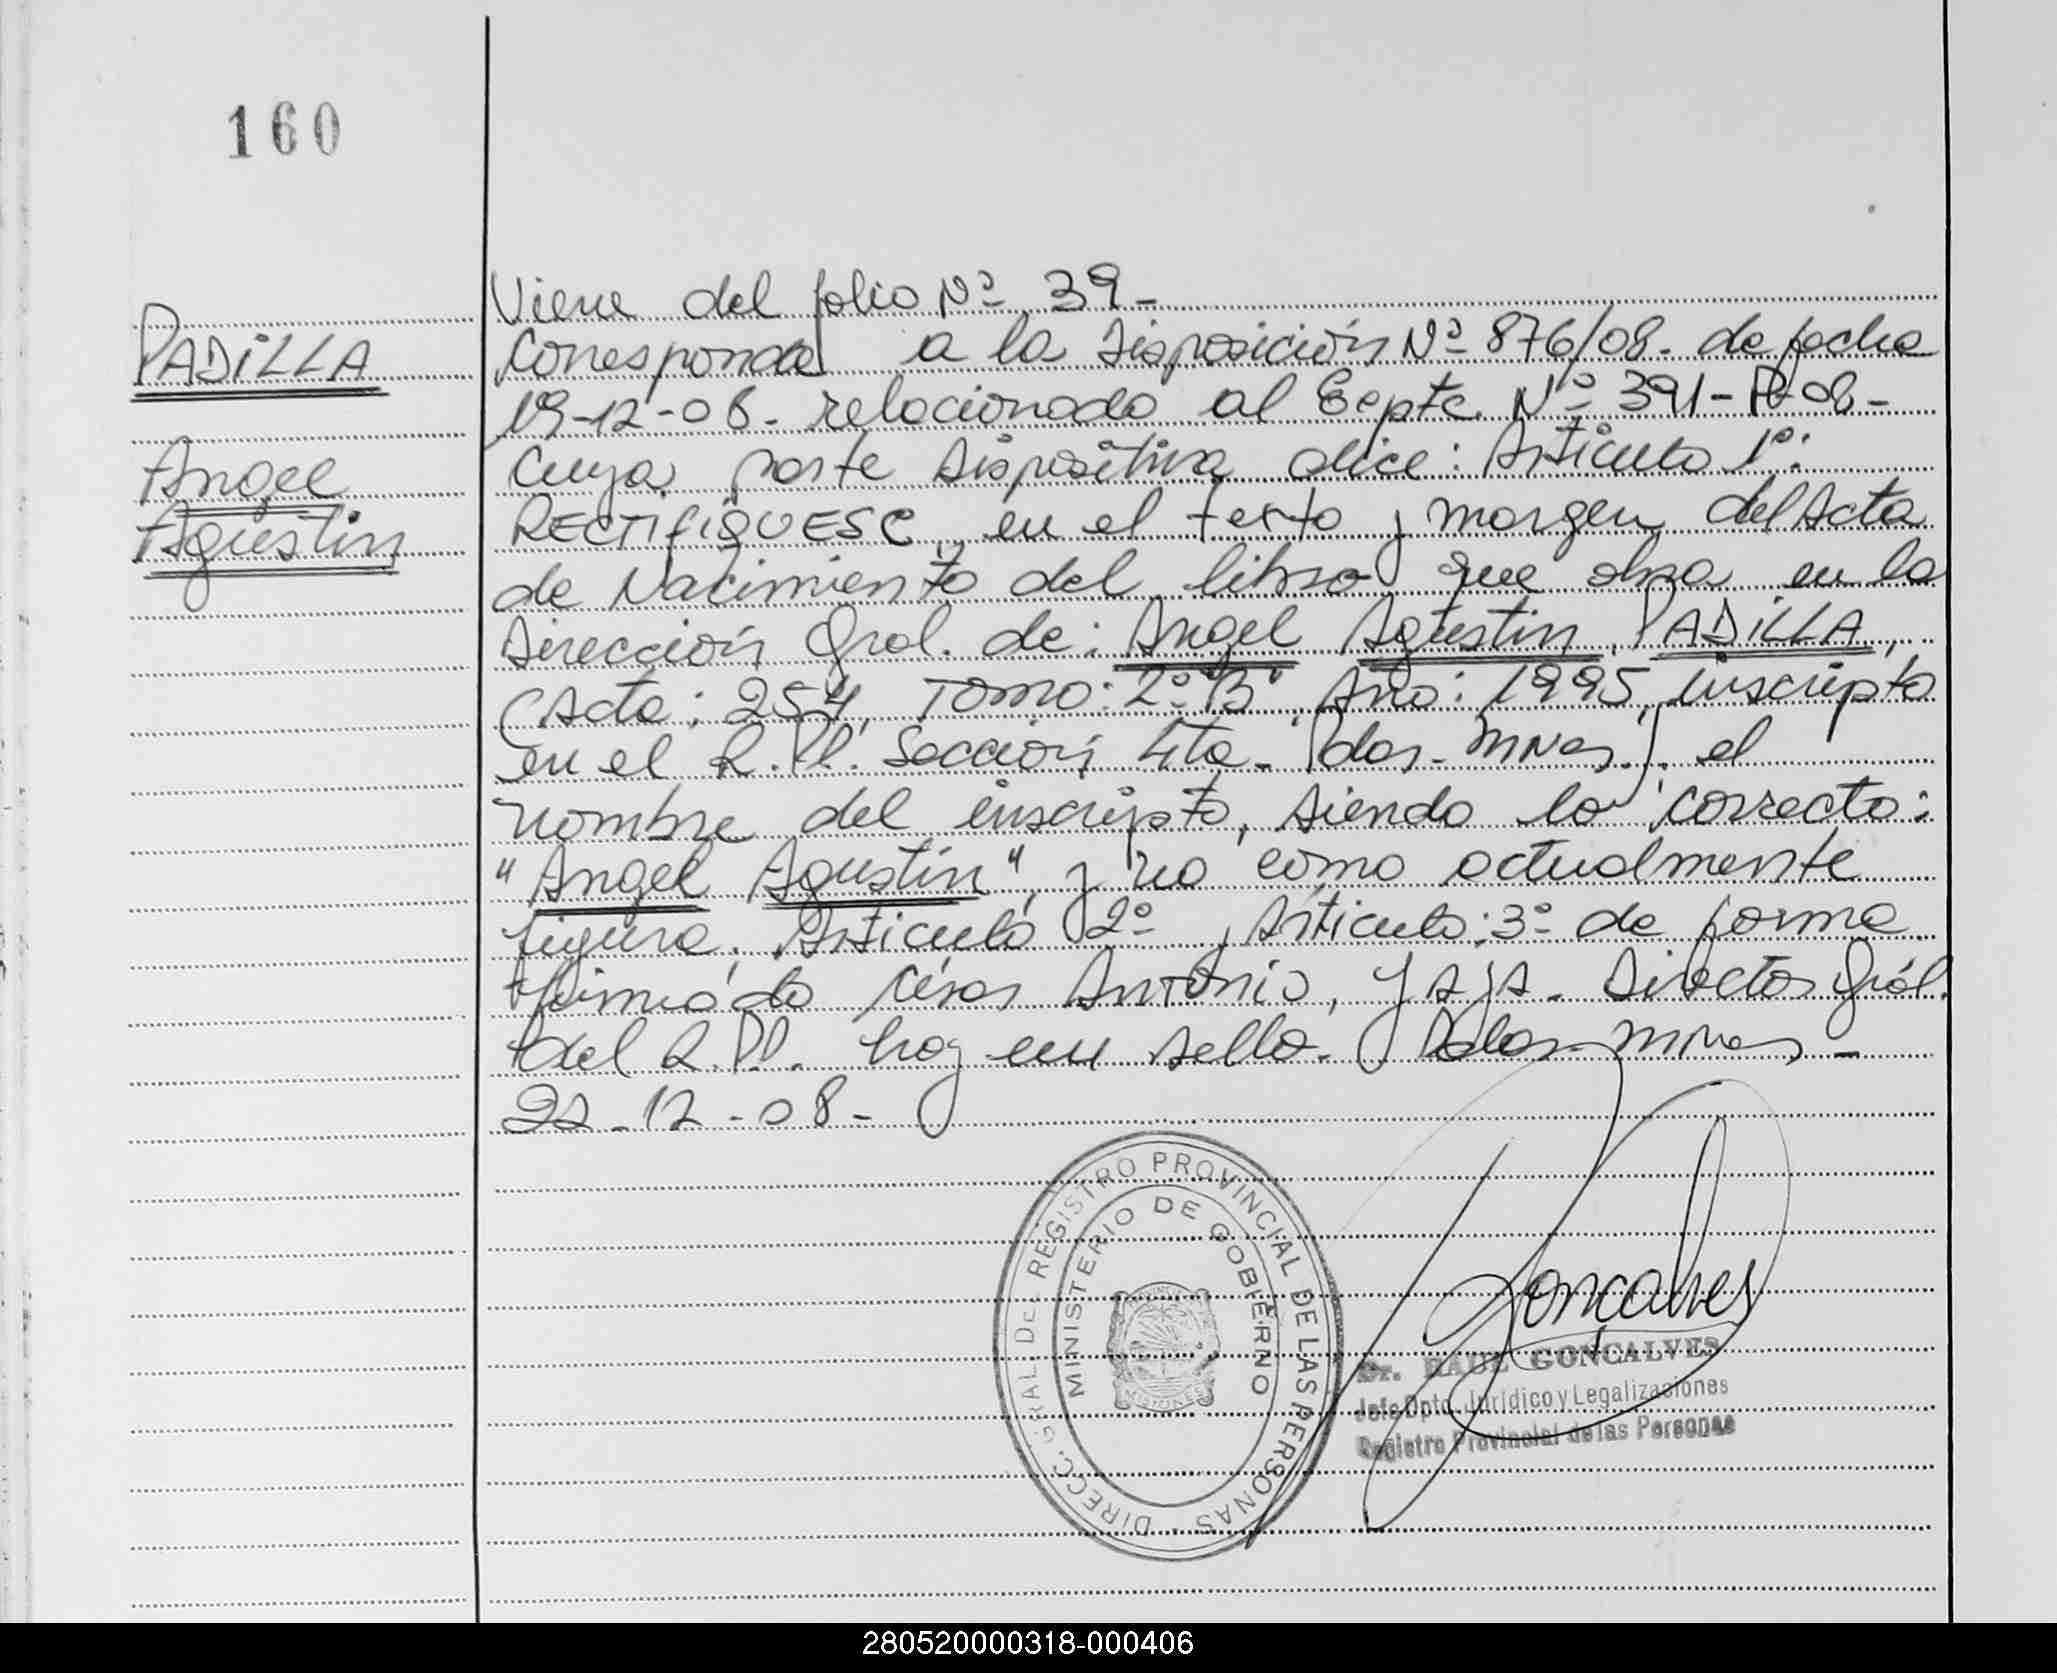 160
PADILLA
Angel
Agustin
Viene del folio Nº 39-
Corresponde a la Disposición Nº 876/08- de fecha
19-12-08- relacionado al Expte. Nº 391-P-08-
Cuya parte dispositiva dice: Artículo 1º:
RECTIFIQUESE en el texto y margen del Acta
de Nacimiento del libro que obra en la
Dirección Gral. de: Angel Agustin PADILLA,
(Acta: 254, Tomo: 2º"B", Año: 1995, inscripto
en el R.P.P. Sección 4ta- Pdas-Mnes.). el
nombre del inscripto, siendo lo correcto:
"Angel Agustin" y no como actualmente
figura. Artículo 2º y Artículo: 3º de forma
Firmado César Antonio, Director Gral.
del R.P.P. hay un sello- Pdas-Mnes-
22-12-08-
DIRECC. GRAL. DEL REGISTRO PROVINCIAL DE LAS PERSONAS
MINISTERIO DE GOBIERNO
PROVINCIA
MISIONES
Goncalves
Dr. RAUL GONÇALVES
Jefe Dpto. Jurídico y Legalizaciones
Registro Provincial de las Personas
280520000318-000406